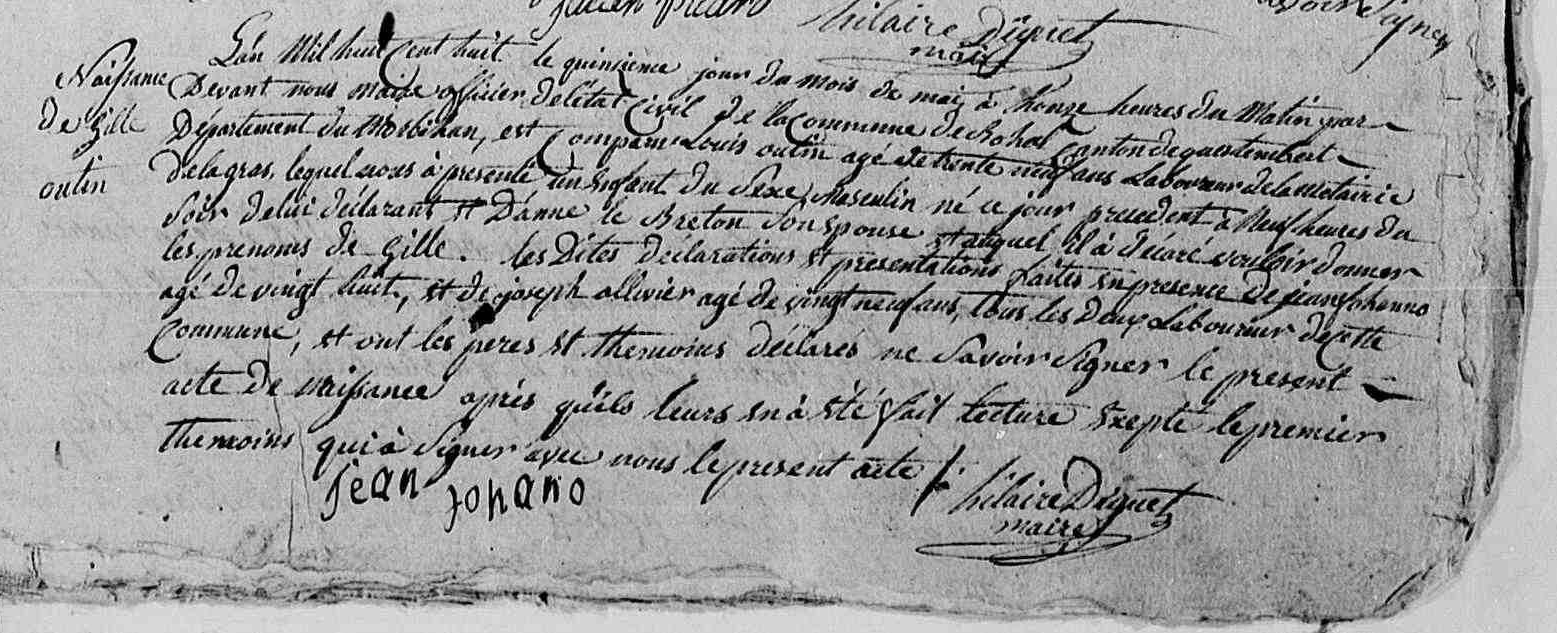 hilaire Diguet
maire
Naissance
De Gille
outin
L'an Mil huit Cent huit le quinzieme jour du mois de mai à honze heures du Matin par
Devant nous maire officier de l'état Civil de la Commune de Rohal Canton de questembert
Département du Morbihan, est Comparu Louis outin agé de trente neuf ans Laboureur de la métairie
de lagras, lequel nous à presenté un Enfant du Sexe Masculin né ce jour precedent à Neuf heures du
Soir de lui déclarant et D'anne le Breton Son Epouse et auquel il à décaré vouloir donner
les prenoms de Gille. les Dites déclarations et presentations faites en presence de jean Johanno
agé de vingt huit, et de joseph ollivier agé de vingt neuf ans, tous les deux Laboureur de cette
Commune, et ont les peres et themoins déclarés ne Savoir Signer le present
acte de naissance après qu'ils leurs en à été fait lecture Exepté le premier
themoins qui à Signer avec nous le present acte /.
jean johano
hilaire Diguet
maire